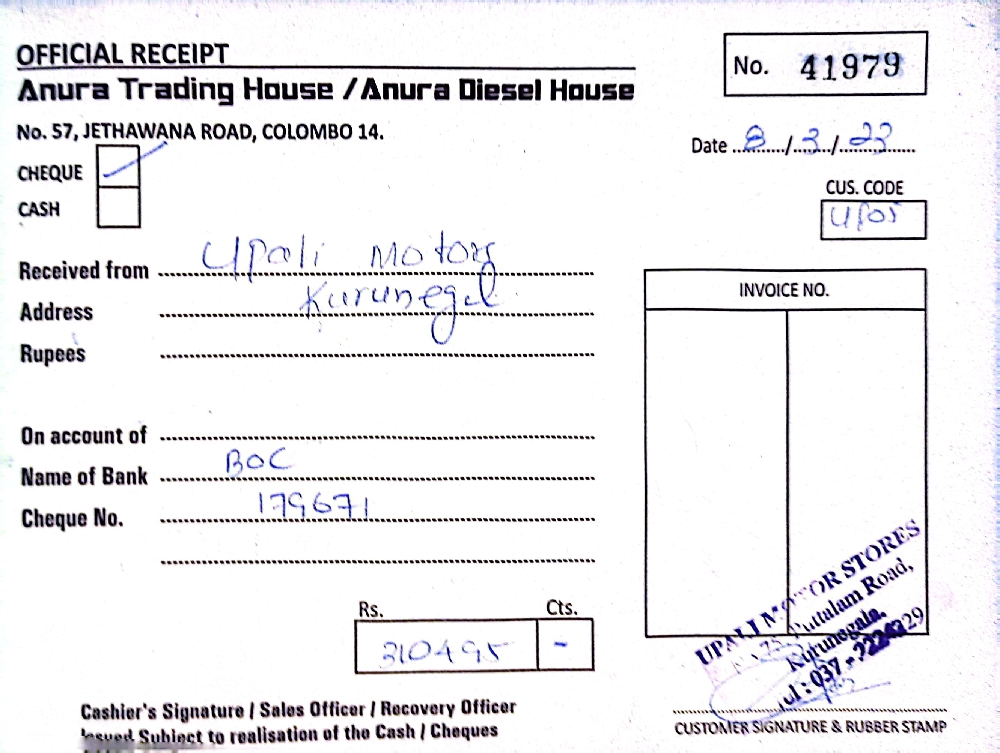 OFFICIAL RECEIPT
Anura Trading House / Anura Diesel House
No. 57, JETHAWANA ROAD, COLOMBO 14.
No. 41979
Date 8/3/23
CHEQUE
CASH
CUS. CODE
UP05
Received from Upali Motors
Address Kurunegal
Rupees
INVOICE NO.
On account of
Name of Bank BOC
Cheque No. 179671
Rs. Cts.
310495 -
UPALI MOTOR STORES
Puttalam Road,
Kurunegala.
Tel : 037 - 2224229
Cashier's Signature / Sales Officer / Recovery Officer
Issued Subject to realisation of the Cash / Cheques
CUSTOMER SIGNATURE & RUBBER STAMP